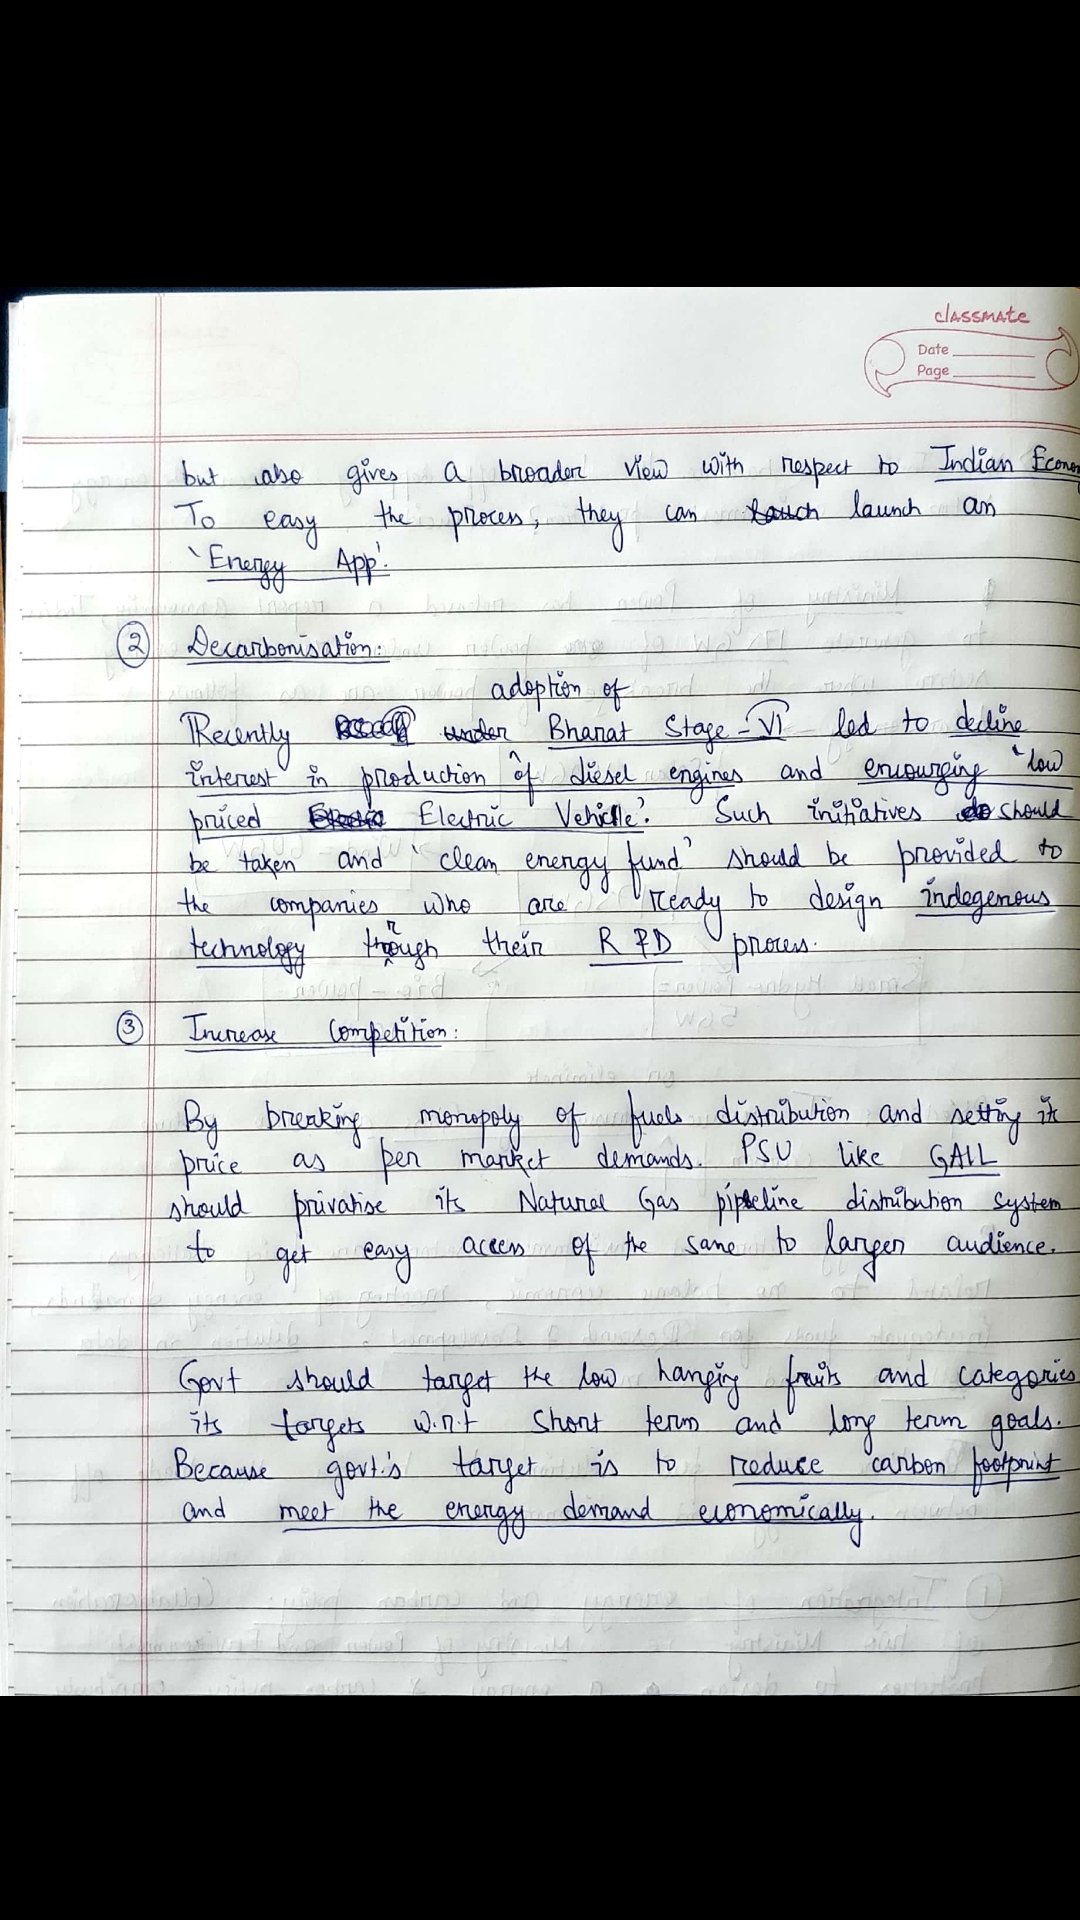 classmate
Date
Page
but also gives a broader view with respect to Indian Econom
To easy the process, they can launch an
'Energy App'.
2 Decarbonisation:
adoption of
Recently Bharat Stage-VI led to decline
interest in production of diesel engines and encourging 'low
priced Electric Vehicle'. Such initiatives should
be taken and 'clean energy fund' should be provided to
the companies who are ready to design indegenous
technology through their R & D process.
3 Increase Competition:
By breaking monopoly of fuels distribution and setting it
price as per market demands. PSU like GAIL
should privatise its Natural Gas pipeline distribution system
to get easy access of the same to larger audience.
Govt should target the low hanging fruits and categories
its targets w.r.t short term and long term goals.
Because govt.'s target is to reduce carbon footprint
and meet the energy demand economically.